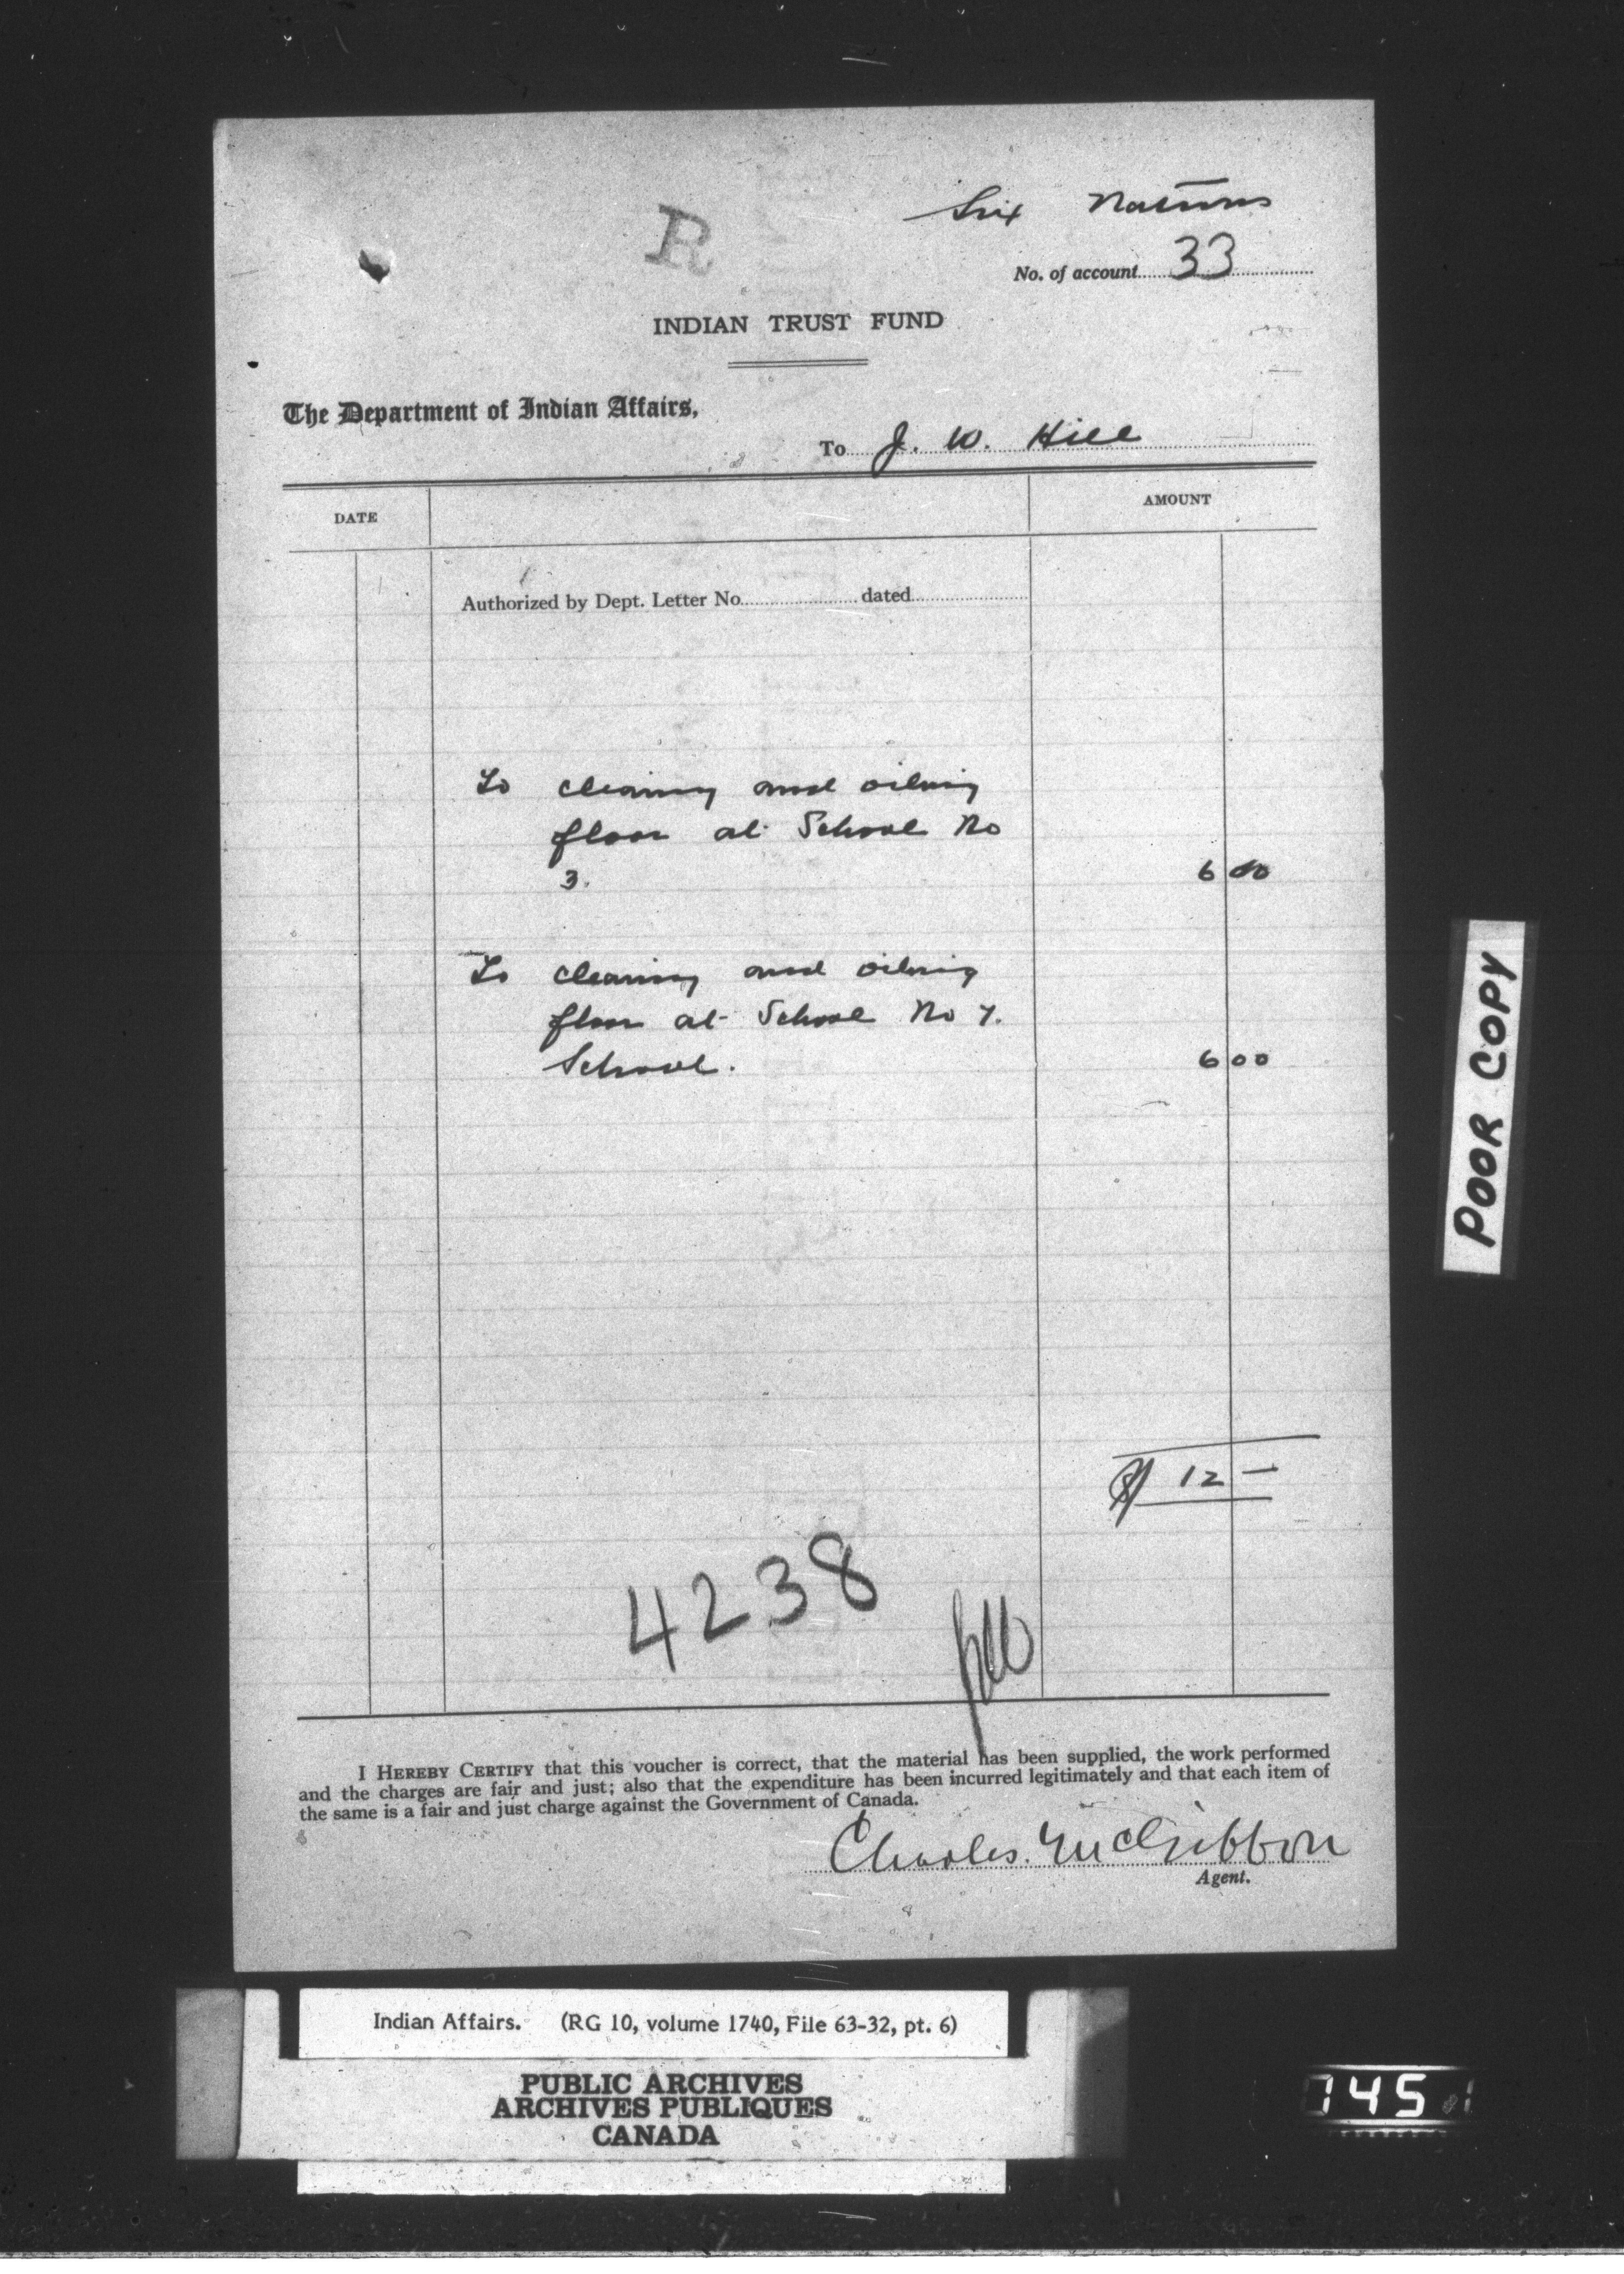 R
Six Nations
No. of account 33
INDIAN TRUST FUND
The Department of Indian Affairs,
To J. W. Hill
DATE
AMOUNT
Authorized by Dept. Letter No. dated
To cleaning and oiling
floor at School No
3. 6 00
To cleaning and oiling
floor at School No 7.
School. 6 00
$ 12 —
4238
I HEREBY CERTIFY that this voucher is correct, that the material has been supplied, the work performed
and the charges are fair and just; also that the expenditure has been incurred legitimately and that each item of
the same is a fair and just charge against the Government of Canada.
Charles McGibbon
Agent.
POOR COPY
Indian Affairs. (RG 10, volume 1740, File 63-32, pt. 6)
PUBLIC ARCHIVES
ARCHIVES PUBLIQUES
CANADA
745